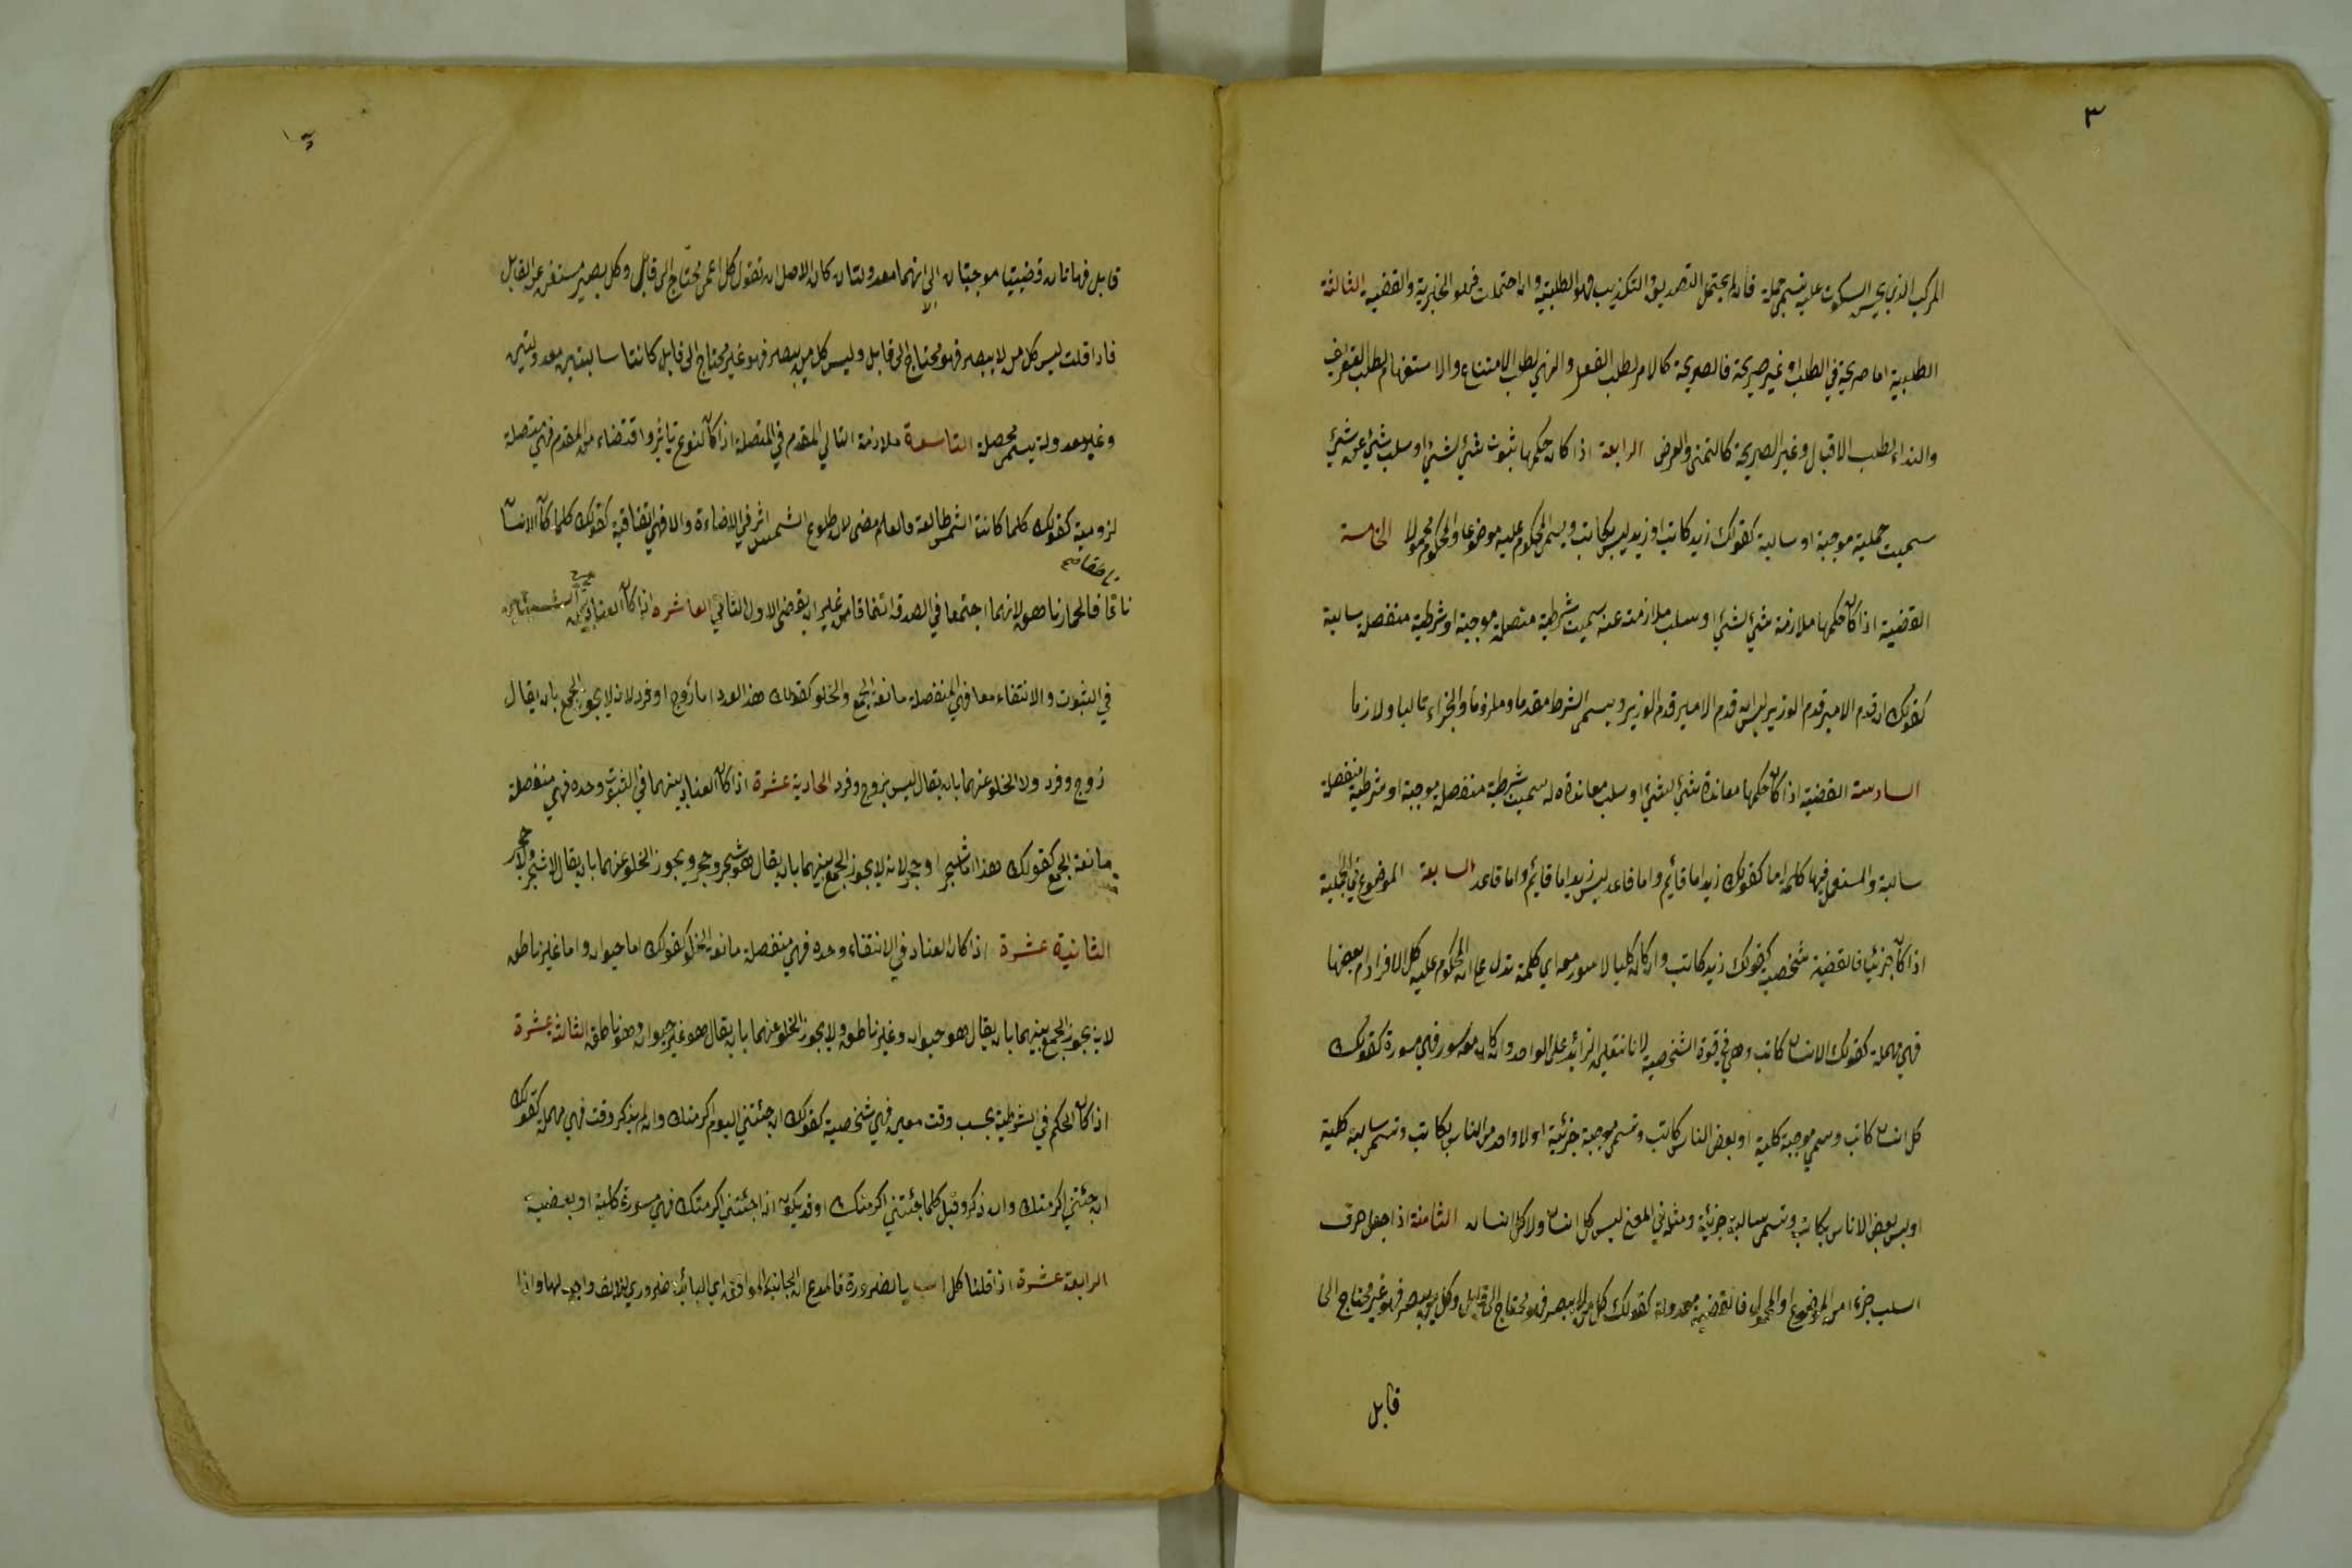 ٣
المركب الذي يحسن السكوت عليه يسمى جملة فان لم يحتمل التصديق والتكذيب فهو الطلبية وان احتملت فهو الخبرية والقضية الثالثة
الطلبية اما صريحة في الطلب او غير صريحة فالصريحة كالامر لطلب الفعل والنهي لطلب الامتناع والاستفهام لطلب التعريف
والنداء لطلب الاقبال وغير الصريحة كالتمني والعرض الرابعة اذا كان حكمها بثبوت شئ لشئ او سلب شئ عن شئ
سميت حملية موجبة او سالبة كقولك زيد كاتب او زيد ليس بكاتب ويسمى المحكوم عليه موضوعا والمحكوم محمولا الخامسة
القضية اذا كان حكمها ملازمة شئ لشئ او سلب ملازمته عنه سميت شرطية متصلة موجبة او شرطية منفصلة سالبة
كقولك ان قدم الامير قدم الوزير ليس ان قدم الامير قدم الوزير ويسمى الشرط مقدما وملزوما والجزاء تاليا ولازما
السادسة القضية اذا كان حكمها معاندة شئ لشئ او سلب معاندة له سميت شرطية منفصلة موجبة او شرطية منفصلة
سالبة والمستعمل فيها كلمة اما كقولك زيد اما قائم واما قاعد ليس زيد اما قائم واما قاعد السابعة الموضوع في الحملية
اذا كان جزئيا فالقضية شخصية كقولك زيد كاتب وان كان كليا لا سور معه اي كلمة تدل ع ان المحكوم عليه كل الافراد ام بعضها
فهي مهملة كقولك الانسان كاتب وهي في قوة الشخصية لانا نتعلى الزائد على الواحد وان كان معه سور فهي مسورة كقولك
كل انسان كاتب وسمي موجبة كلية او بعض الناس كاتب وتسمى موجبة جزئية او لا واحد من الناس بكاتب وتسمى سالبة كلية
او ليس بعض الاناس بكاتب وتسمى سالبة جزئية ومثله في المعنى ليس كل انسان ولا كل انسان الثامنة اذا جعل حرف
السلب جزءا من الموضوع او المحمول فالقضية معدولة كقولك كل من لا يبصر فهو محتاج الى قابل وكل من يبصر فهو غير محتاج الى
قابل
قابل فهاتان قضيتا موجبتان الا انهما معدولتان كان الاصل ان تقول كل اعمى محتاج الى قابل وكل بصير مستغن عن القابل
فاذا قلت ليس كل من لا يبصر فهو محتاج الى قابل وليس كل من يبصر فهو غير محتاج الى قابل كانتا سالبتين معدولتين
وغير معدولة يسمى محصلة التاسعة ملازمة التالي المقدم في المتصلة اذا كان لنوع تاثير واقتضاء من المقدم فهي متصلة
لزومية كقولك كلما كانت الشمس طالعة والعالم مضى لان طلوع الشمس اثر في الاضاءة والا فهي اتفاقية كقولك كلما كان الانسان
ناطقا صح
ناقا فالحمار ناهق لانهما اجتمعا في الصدق اتفاقا من غير ان يقتضى الاول الثاني العاشره اذا كان العناد بين الشيئين
في الثبوت والانتفاء معا فهي المنفصلة مانعة الجمع والخلو كقولك هذا العدد اما زوج او فرد لانه لا يجوز الجمع بان يقال
زوج وفرد ولا الخلو عنهما بان يقال ليس بزوج وفرد الحادية عشرة اذا كان العناد بينهما في الثبوت وحده فهي منفصلة
مانعة الجمع كقولك هذا اما شجر او حجر لانه لا يجوز الجمع بينهما بان يقال هو شجر وحجر ويجوز الخلو عنهما بان يقال لا شجر ولا حجر
الثانية عشرة اذا كان العناد في الانتفاء وحده فهي منفصلة مانعة الخلو كقولك اما حيوان واما غير ناطق
لانه يجوز الجمع بينهما بان يقال هو حيوان وغير ناطق ولا يجوز الخلو عنهما بان يقال هو غير حيوان وهو ناطق الثالثة عشرة
اذا كان الحكم في الشرطية بحسب وقت معين فهي شخصية كقولك ان جئتني اليوم اكرمتك وان لم يذكر وقت فهي مهملة كقولك
ان جئتني اكرمتك وان ذكر وقيل كلما جئتني اكرمتك او قد يكون اذا جئتني اكرمتك فهي مسورة كلية او بعضية
الرابعة عشرة اذا قلنا كل ا ب بالضرورة فالمدع ان الجانب الموافق اي البائية ضروري للالف واجب لها واذا